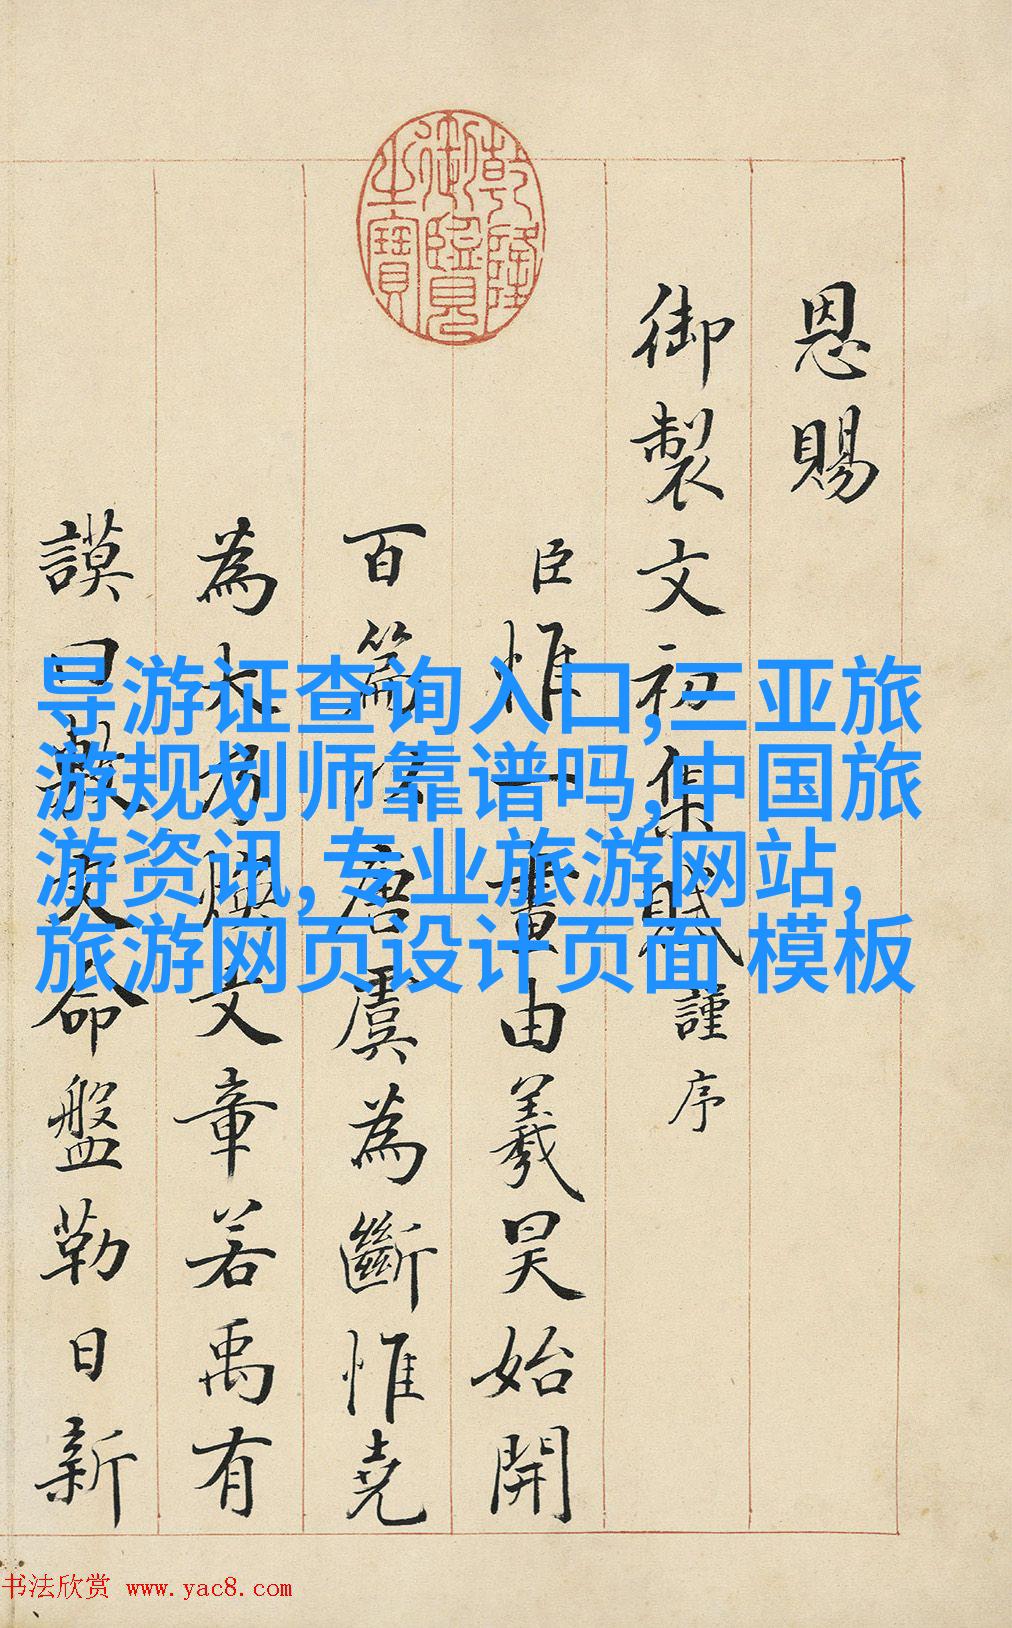 乾隆
御覽
之寶
恩賜
御製文初集賦謹序
臣惟一畫由羲昊始開
百篇唐虞為斷惟堯
為大方煥文章若禹有
謨曰敷文命盤勒日新
导游证查询入口,三亚旅
游规划师靠谱吗,中国旅
游资讯,专业旅游网站,
旅游网页设计页面 模板
书法欣赏 www.yac8.com